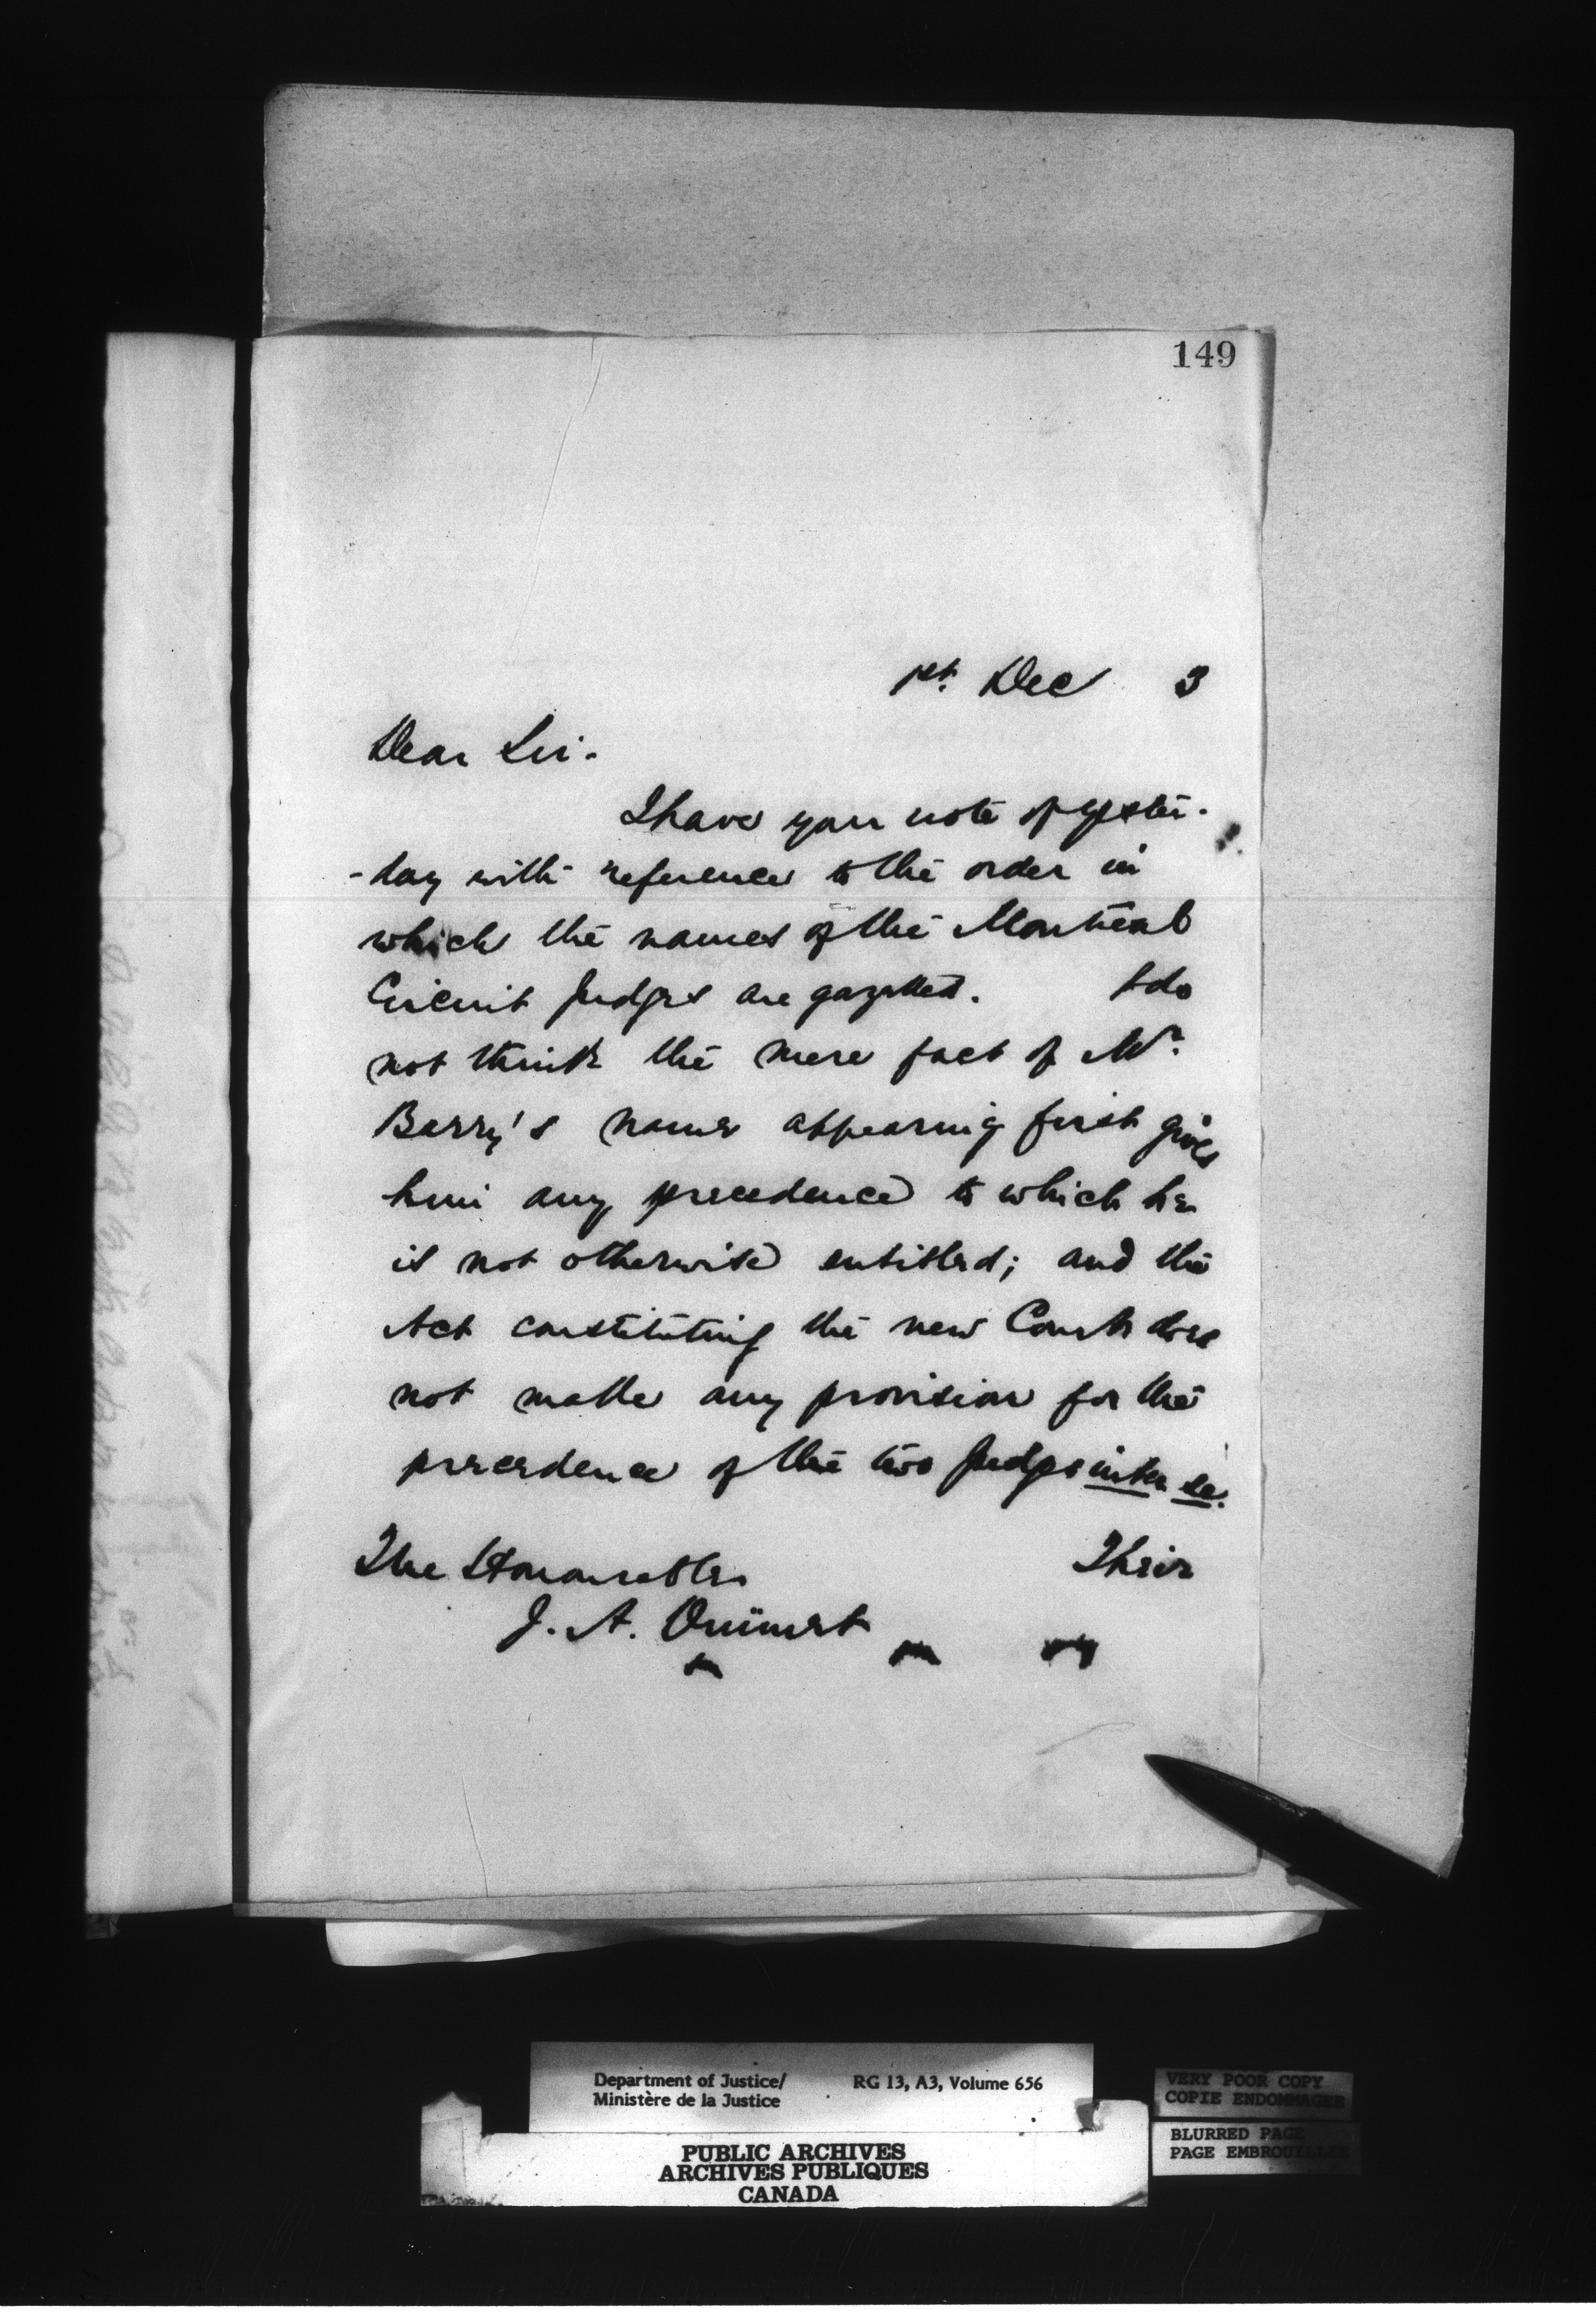 149
1st. Dec 3
Dear Sir.
I have your note of yester-
-day with reference to the order in
which the names of the Montreal
Circuit Judges are gazetted. I do
not think the mere fact of Mr.
Barry's name appearing first gives
him any precedence to which he
is not otherwise entitled; and the
Act constituting the new Court does
not make any provision for the
precedence of the two Judges inter se.
The Honourable Their
J. A. Ouimet
Department of Justice/ RG 13, A3, Volume 656
Ministère de la Justice
PUBLIC ARCHIVES
ARCHIVES PUBLIQUES
CANADA
VERY POOR COPY
COPIE ENDOMMAGEE
BLURRED PAGE
PAGE EMBROUILLEE